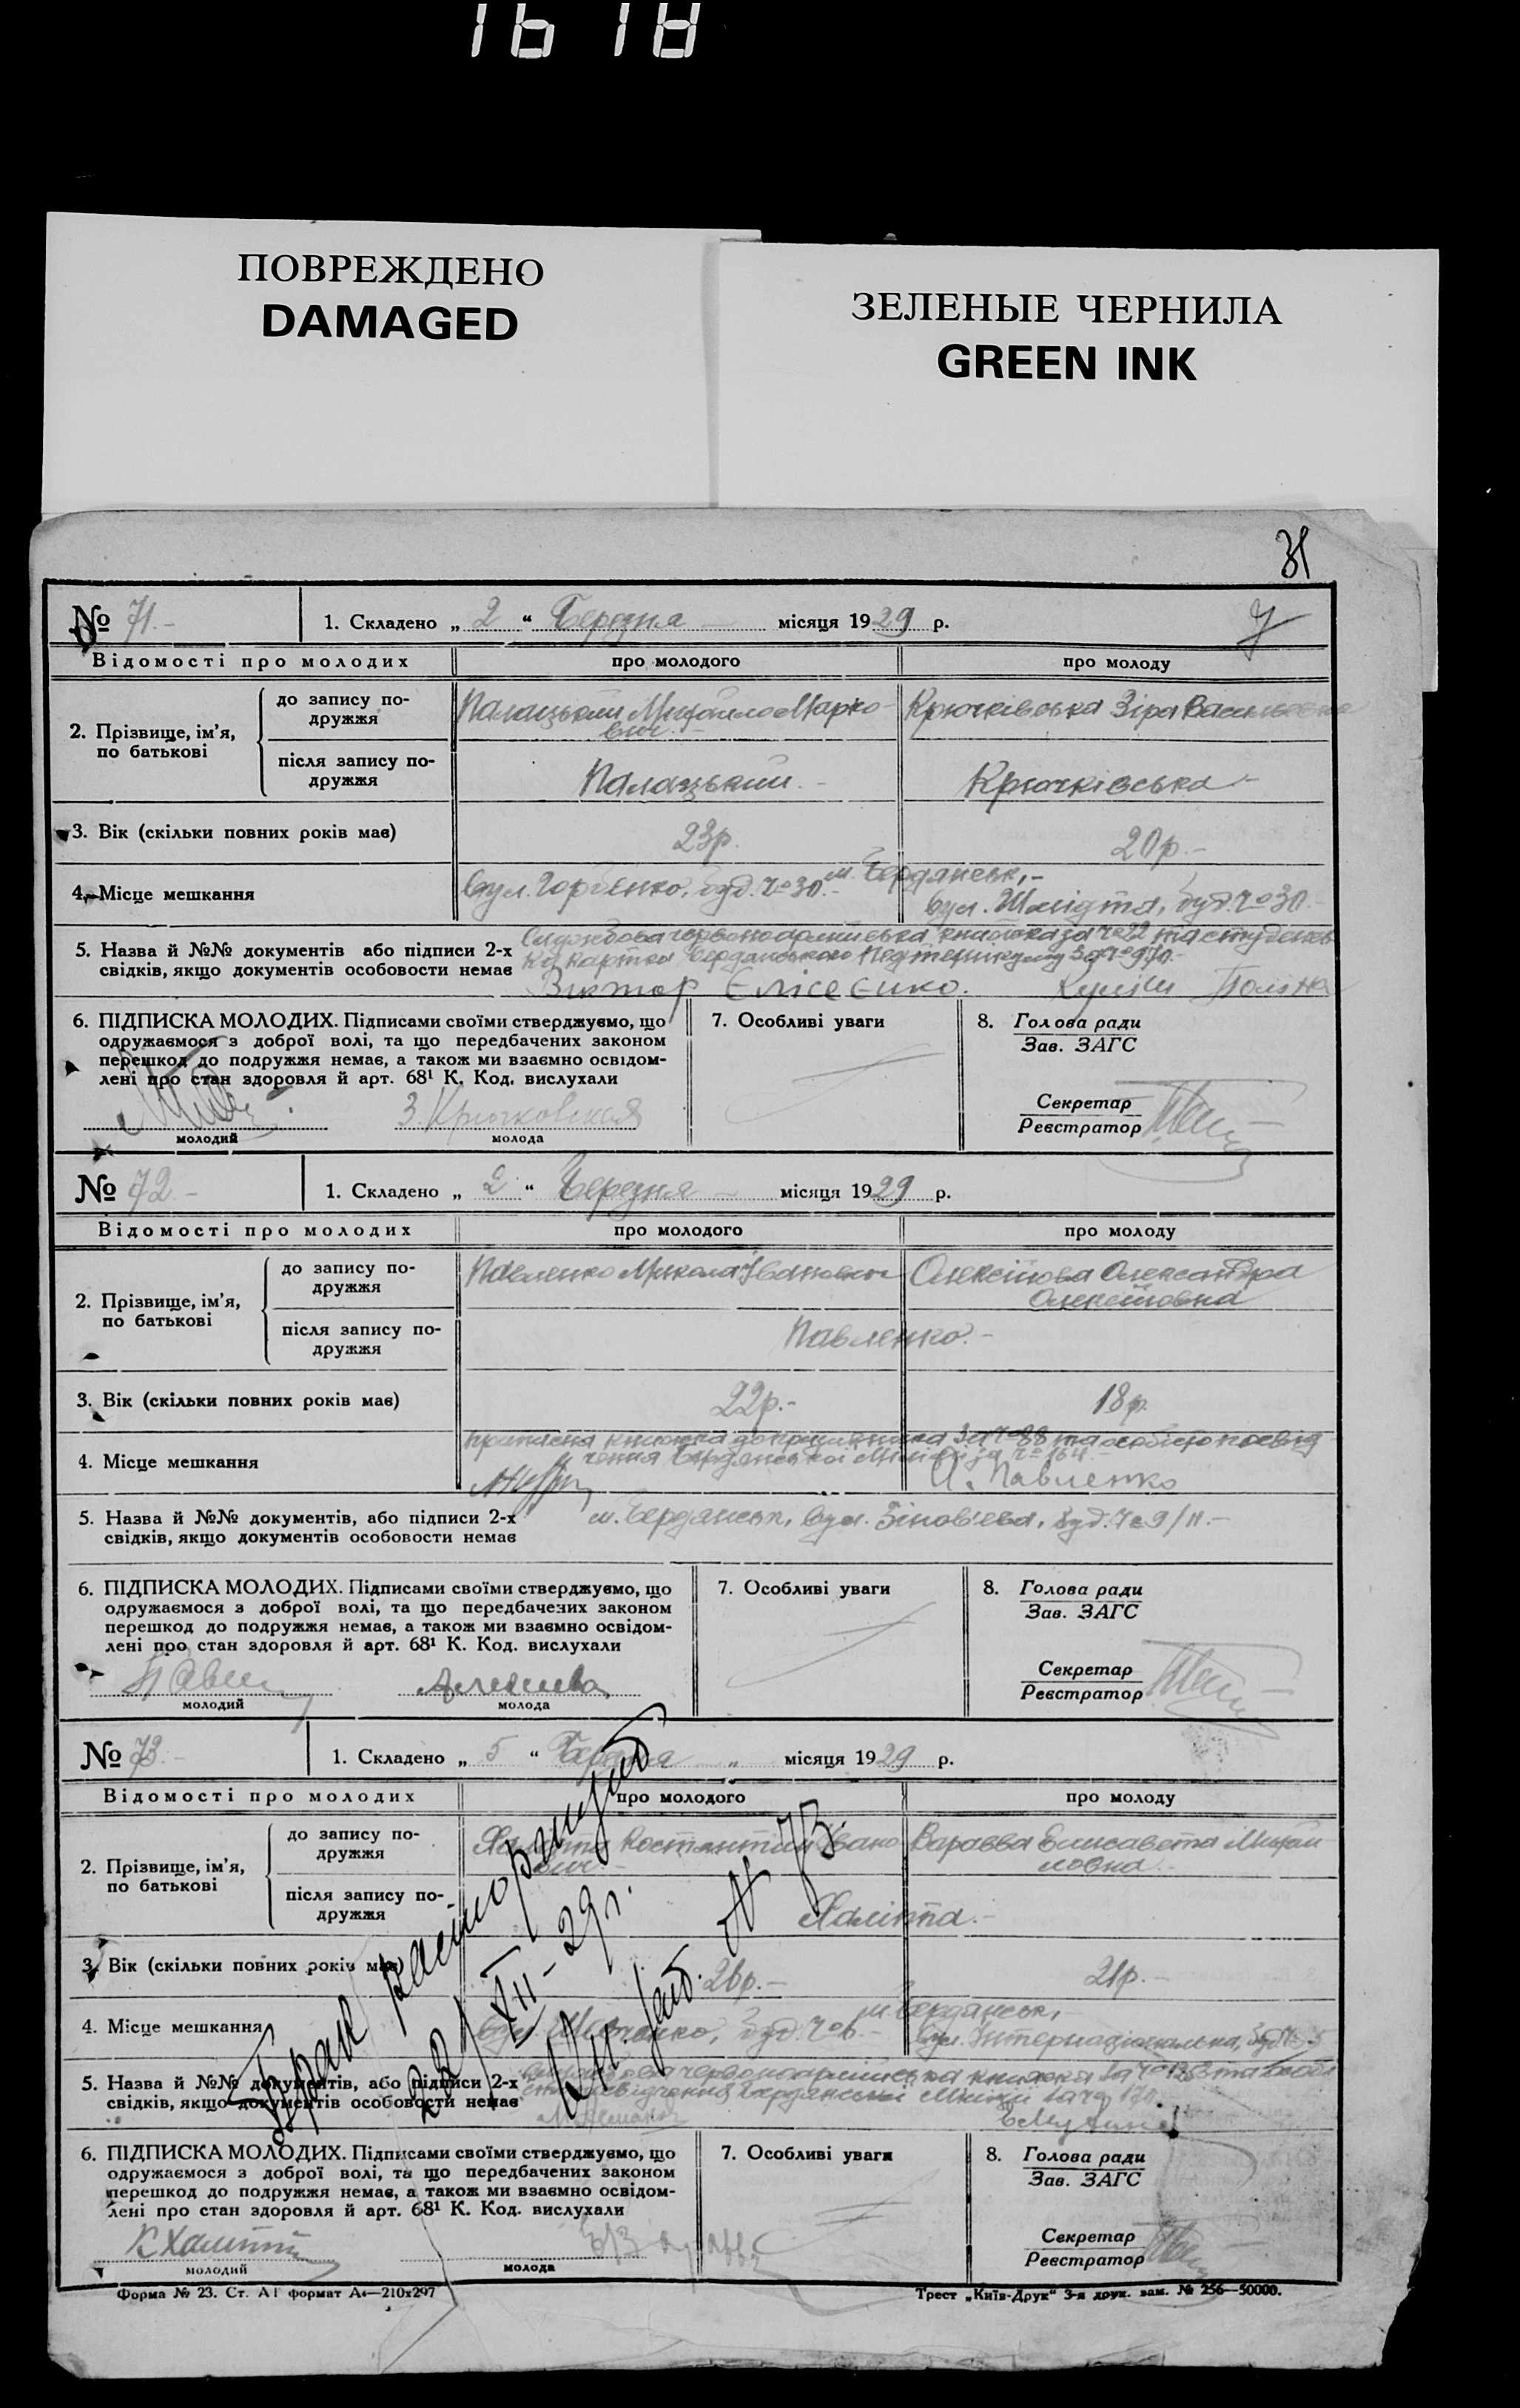 1618
ПОВРЕЖДЕНО
DAMAGED
ЗЕЛЕНЫЕ ЧЕРНИЛА
GREEN INK
31
№ 71.-
1. Складено „ 2 “ Березня — місяця 1929 р.
7
Відомості про молодих
про молодого
про молоду
2. Прізвище, ім’я, по батькові
до запису подружжя
Палацький Михайло Маркович.-
Крючківська Зіра Васильовна
після запису подружжя
Палацький.-
Крючківська-
3. Вік (скільки повних років має)
23р.
20р.-
4. Місце мешкання
м. Бердянськ,-
вул. Горбенко, буд. № 30.-
вул. Шмідта, буд. № 30.-
5. Назва й №№ документів або підписи 2-х
свідків, якщо документів особовости немає
Службова червоноармійська книжка за № 22 та студенсь
ка картка Бердянського Педтехнікуму за № 970.-
Віктор Єлісеєнко. Куліш Поліна
6. ПІДПИСКА МОЛОДИХ. Підписами своїми стверджуємо, що
одружаємося з доброї волі, та що передбачених законом
перешкод до подружжя немає, а також ми взаємно освідом-
лені про стан здоров’я й арт. 68¹ К. Код. вислухали
З. Крючковская
молодий
молода
7. Особливі уваги
8. Голова ради
Зав. ЗАГС
Секретар
Реєстратор
№ 72-
1. Складено „ 2 “ Березня — місяця 1929 р.
Відомості про молодих
про молодого
про молоду
2. Прізвище, ім’я, по батькові
до запису подружжя
Павленко Микола Іванович
Олексійова Олександра
Олексійовна
після запису подружжя
Павленко.-
3. Вік (скільки повних років має)
22р.-
18р.
4. Місце мешкання
книжка допризивника за № 88 та особісте посвід
чення Бердянської Міліції за № 164.-
А. Павленко
5. Назва й №№ документів, або підписи 2-х
свідків, якщо документів особовости немає
м. Бердянськ, вул. Зінов’єва, буд. № 9/11.-
6. ПІДПИСКА МОЛОДИХ. Підписами своїми стверджуємо, що
одружаємося з доброї волі, та що передбачених законом
перешкод до подружжя немає, а також ми взаємно освідом-
лені про стан здоровля й арт. 68¹ К. Код. вислухали
молодий
молода
7. Особливі уваги
8. Голова ради
Зав. ЗАГС
Секретар
Реєстратор
№ 73.-
1. Складено „ 5 “ Березня — „ — місяця 1929 р.
Відомості про молодих
про молодого
про молоду
2. Прізвище, ім’я, по батькові
до запису подружжя
Халіпта Костянтин Івано
вич.-
Варавва Елисавета Михай
ловна.-
після запису подружжя
Халіпта.-
3. Вік (скільки повних років має)
26р.-
21р.-
4. Місце мешкання
м. Бердянськ,
вул. Шевченко, буд. № 6.-
вул. Інтернаціональна, буд. № 5
5. Назва й №№ документів, або підписи 2-х
свідків, якщо документів особовости немає
червоноармійська книжка за
посвідчення Бердянської Міліції за № 170.-
Брак расторгнут
28/XII-29г.
№ 73.
6. ПІДПИСКА МОЛОДИХ. Підписами своїми стверджуємо, що
одружаємося з доброї волі, та що передбачених законом
перешкод до подружжя немає, а також ми взаємно освідом-
лені про стан здоровля й арт. 68¹ К. Код. вислухали
молодий
молода
7. Особливі уваги
8. Голова ради
Зав. ЗАГС
Секретар
Реєстратор
Форма № 23. Ст. А1 формат А4—210х297
Трест „Київ-Друк“ 3-я друк. зам. № 256—50000.